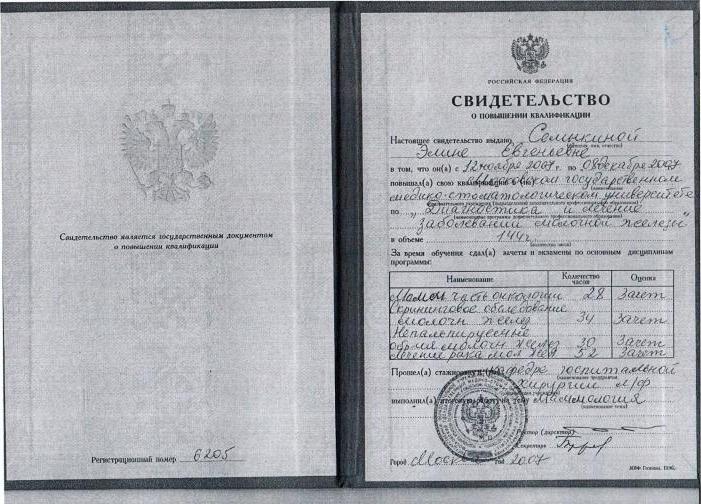 Свидетельство является государственным документом
о повышении квалификации
Регистрационный номер 6205
РОССИЙСКАЯ ФЕДЕРАЦИЯ
СВИДЕТЕЛЬСТВО
О ПОВЫШЕНИИ КВАЛИФИКАЦИИ
Настоящее свидетельство выдано Семыкиной
(фамилия, имя, отчество)
Элине Евгеньевне
в том, что он(а) с 12 ноября 2007 г. по 08 декабря 2007
повышал(а) свою квалификацию в (на) Московском государственном
медико-стоматологическом университете
по „Диагностика и лечение
заболеваний молочной железы"
в объеме 144 ч.
За время обучения сдал(а) зачеты и экзамены по основным дисциплинам
программы:
Наименование Количество часов Оценка
часть онкологии 28 Зачет
Скрининговое обследование
молочн желез 34 Зачет
Непальпируемые
обр-я молочн желез 30 Зачет
Лечение рака мол жел 52 Зачет
Прошел(а) стажировку в (на) Кафедре госпитальной
хирургии л/ф
выполнил(а) итоговую работу на тему Маммология
(наименование темы)
Ректор (директор)
Секретарь
Город Москва год 2007